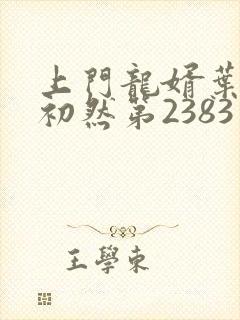 上門龍婿葉
初然第2383
王學東